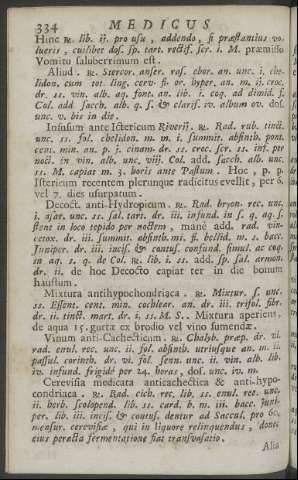 334 MEDICUS
Hinc ℞. lib. ij. pro usu, addendo, si præstantius vo-
lueris, cuilibet dos. sp. tart. rectif. scr. i. M. præmisso
Vomitu saluberrimum est.
Aliud. ℞. Stercor. anser. ras. ebor. an. unc. i. che-
lidon. cum tot. ling. cerv. fi. or. hyper. an. m. ij. croc.
dr. ss. vin. alb. aq. font. an. lib. i. coq. ad dimid. f.
Col. add. sacch. alb. q. s. & clarif. iv. album ov. dos.
unc. v. bis in die.
Infusum ante Ictericum Riverij. ℞. Rad. rub. tinct.
unc. ss. fol. chelidon. m. m. i. summit. absinth. pont.
cent. min. an. p. j. cinam. dr. ss. croc. scr. ss. inf. per
noct. in vin. alb. unc. viij. Col. add. sacch. alb. unc.
ss. M. capiat m. 3. boris ante Pastum. Hoc, p. p.
Ictericum recentem plerunque radicitus evellit, per 6.
vel 7. dies usurpatum.
Decoct. anti-Hydropicum. ℞. Rad. bryon. rec. unc.
i. asar. unc. ss. sal. tart. dr. iii. infund. in s. q. aq. s.
stent in loco tepido per noctem, mane add. rad. vin-
cetox. dr. iii. summit. absinth. mi. fl. bellid. m. s. bacc.
Juniper. dr. iii. incis. & contus. confund. simul. ac coq.
in aq. s. q. de Col. ℞. lib. i. ss. add. sp. sal. armon.
dr. ii. de hoc Decocto capiat ter in die bonum
haustum.
Mixtura antihypochondriaca. ℞. Mixtur. s. unc.
ss. Essent. cent. min. cochlear. an. dr. iii. trifol. fibr.
dr. ii. tinct. mart. dr. i. ss. M. S.. Mixtura aperiens,
de qua 15. guttæ ex brodio vel vino sumendæ.
Vinum anti-Cachecticum. ℞. Chalyb. præp. dr. vi.
rad. enul. rec. unc. ii. fol. absinth. utriusque an. m. ii.
passul. corinth. dr. vi. fol. senn. unc. ii. vin. alb. lib.
iv. infund. frigidè per 24. horas, dos. unc. iv. m.
Cerevisia medicata anticachectica & anti-hypo-
condriaca. ℞. Rad. cich. rec. lib. ss. enul. rec. unc.
ii. herb. scolopend. lib. ss. card. b. m. iii. bacc. juni-
per. lib. iii. incis. & contus. dentur ad Saccul. pro 60.
mensur. cerevisiæ, qui in liquore relinquendus, donec
ejus peracta fermentatione fiat transvasatio.
Alia